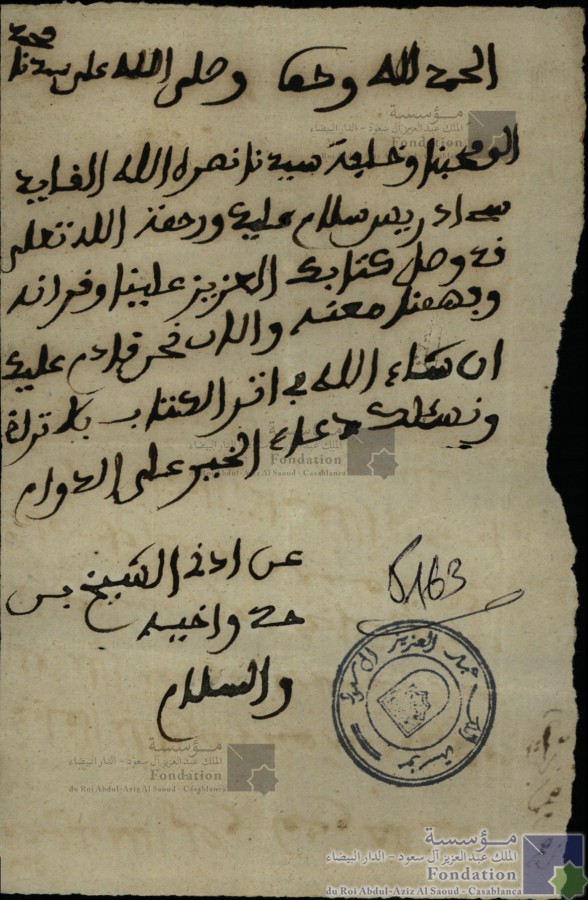 الحمد لله وحده وصلى الله على سيدنا محمد
الى محبنا وخليفة سيدنا نصره الله القايد
سي ادريس سلام عليك ورحمة الله تعلى
قد وصل كتابك العزيز علينا وقراناه
وفهمنا معناه والان نحن قادم عليك
ان شاء الله في اثر الكتاب بلا تراخ
ونسئلك دعاء الخير على الدوام
عن اذن الشيخ
واخيه
والسلام
5163
عبد العزيز آل سعود
مؤسسة
مؤسسة
الملك عبد العزيز آل سعود - الدار البيضاء
Fondation
du Roi Abdul-Aziz Al Saoud - Casablanca